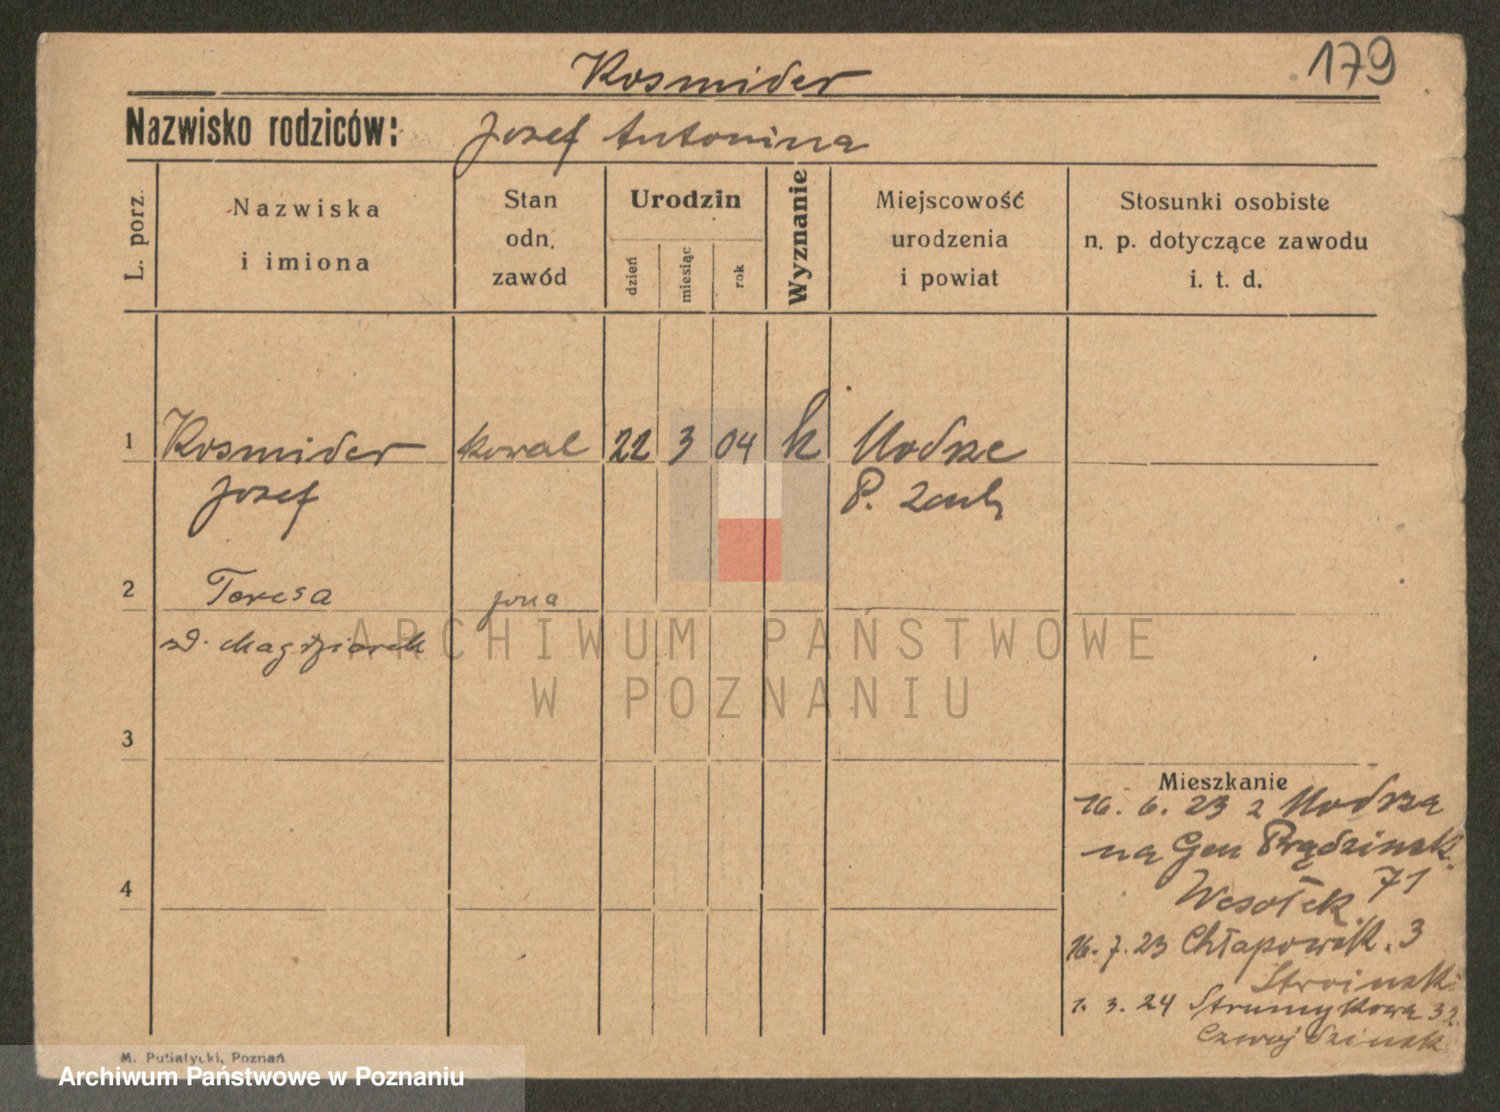 179
Kosmider
Nazwisko rodziców: Josef Antonina
L. porz.
Nazwiska
i imiona
Stan
odn.
zawód
Urodzin
dzień
miesiąc
rok
Wyznanie
Miejscowość
urodzenia
i powiat
Stosunki osobiste
n. p. dotyczące zawodu
i. t. d.
1 Kosmider kowal 22 3 04 k Modrze
Josef P.
2 Teresa żona
zd. Magdziarek
3
4
Mieszkanie
16. 6. 23 z Modrza
na Gen Prądzinsk.
71
Wesołek
16. 7. 23 Chłapowsk. 3
Stroinski
1. 3. 24 Strumykowa 32.
Czwojdzinsk
M. Putiatycki, Poznań
ARCHIWUM PAŃSTWOWE
W POZNANIU
Archiwum Państwowe w Poznaniu